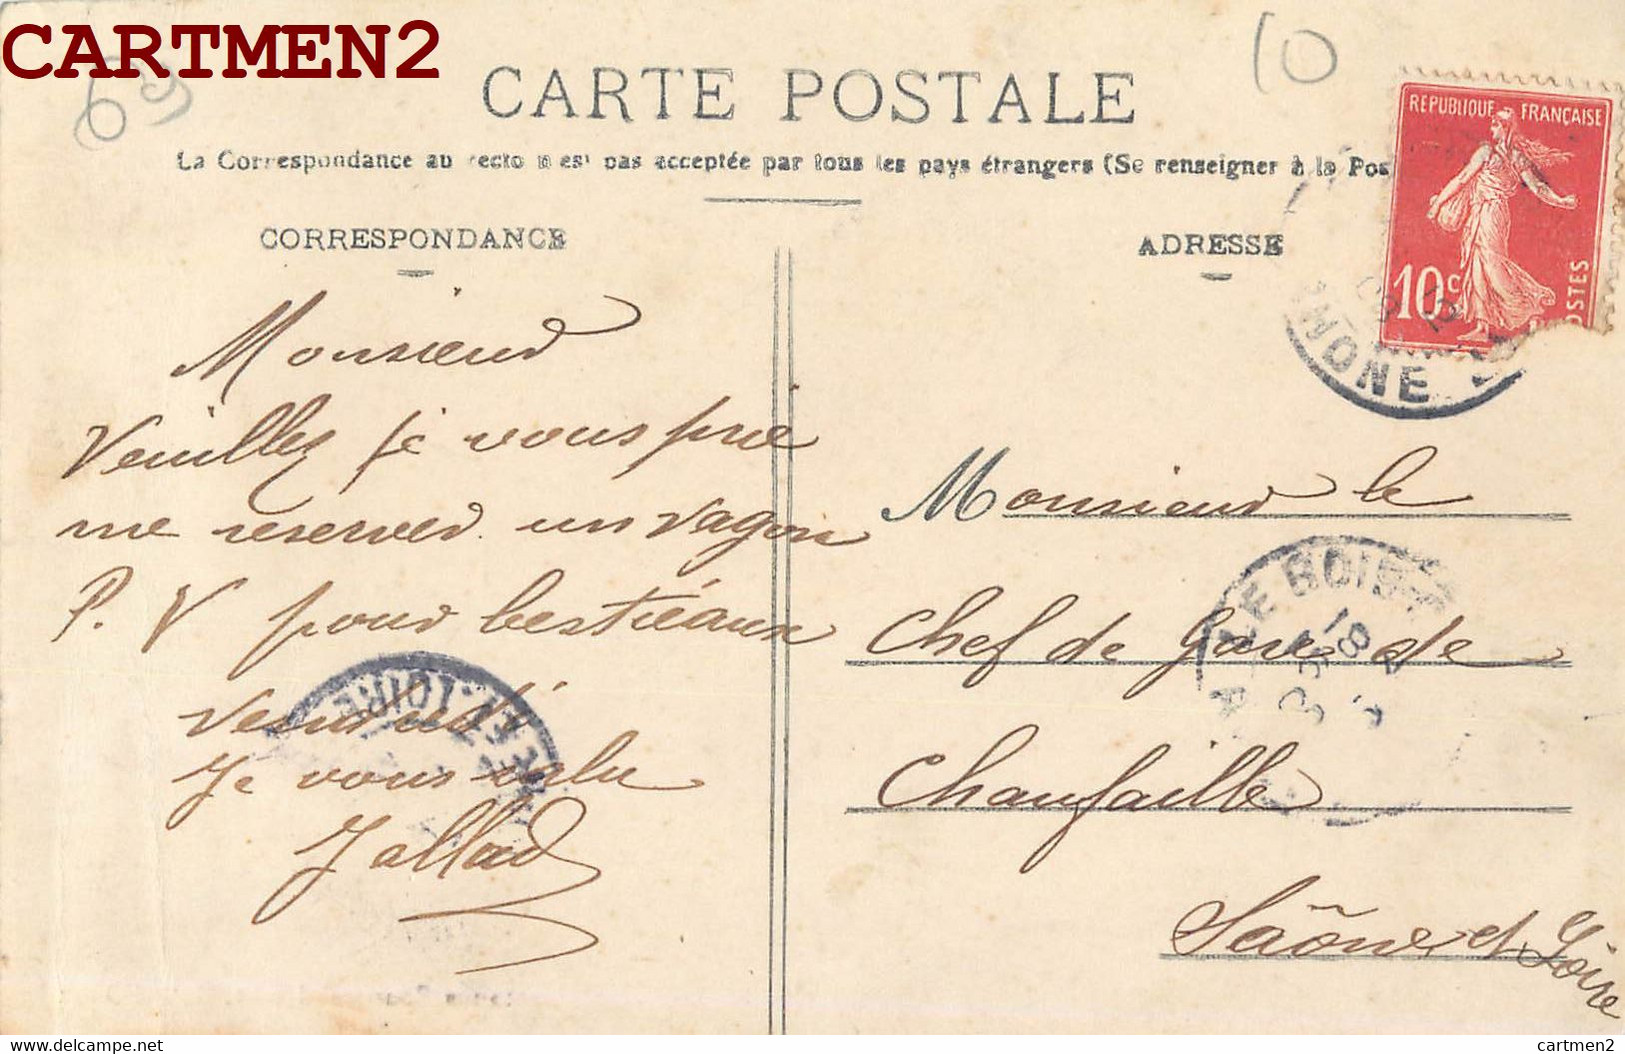 CARTMEN2
69
10
CARTE POSTALE
La Correspondance au recto n'est pas acceptée par tous les pays étrangers (Se renseigner à la Pos
CORRESPONDANCE
ADRESSE
REPUBLIQUE FRANÇAISE
10c
POSTES
RHONE
Monsieur
Veuillez je vous prie
me reserver un vagon
P. V pour bestieaux
Vendredi
Je vous salu
Jallad
ET-LOIRE
Monsieur le
Chef de Gare de
Chaufaille
Saône et Loire
LE BOIS
18
delcampe.net
cartmen2